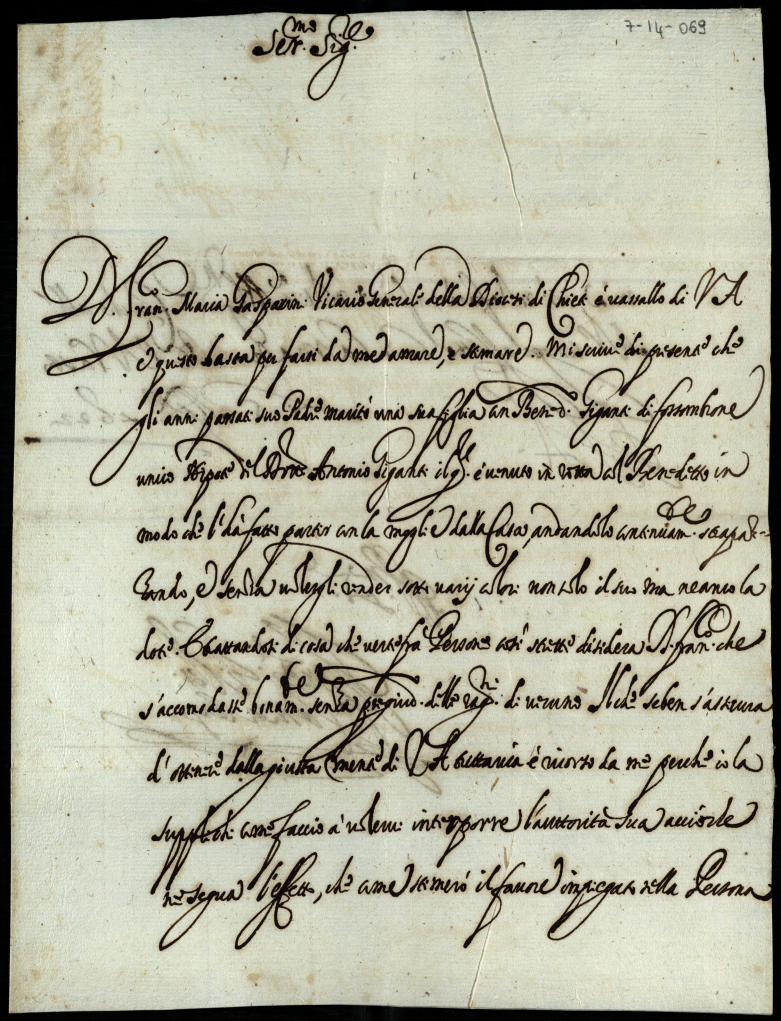 7-14-069
Ser.mo Sig.re
D. Fran.co Maria Gasparini Vicario Generale della Diocesi di Chieti è vassallo di V A
e questo basta per farsi da me amare, e stimare. Mi scrive di presente che
gli anni passati suo Padre maritò una sua figlia con Bened.o Giganti di fossombrone
unico Nipote del Dottor Antonio Giganti il q.le è venuto in rotta col Benedetto in
modo che l'ha fatto partir con la moglie dalla Casa, andandolo continuam.te strapaz-
zando, e senza volergli render sotto varij colori non solo il suo ma neanco la
dote. Trattandosi di cosa che verte frà Persone così strette desidera D. fran.co che
s'accomodasse bonam.te senza pregiud.o delle rag.ni di veruno Il che seben s'assicura
d'ottenere dalla giusta mente di V A tuttavia è ricorso da me perche io la
supplichi come faccio à voler interporre l'auttorità sua acciò che
ne segua l'effetto, che come stimerò il favore impiegato nella Persona